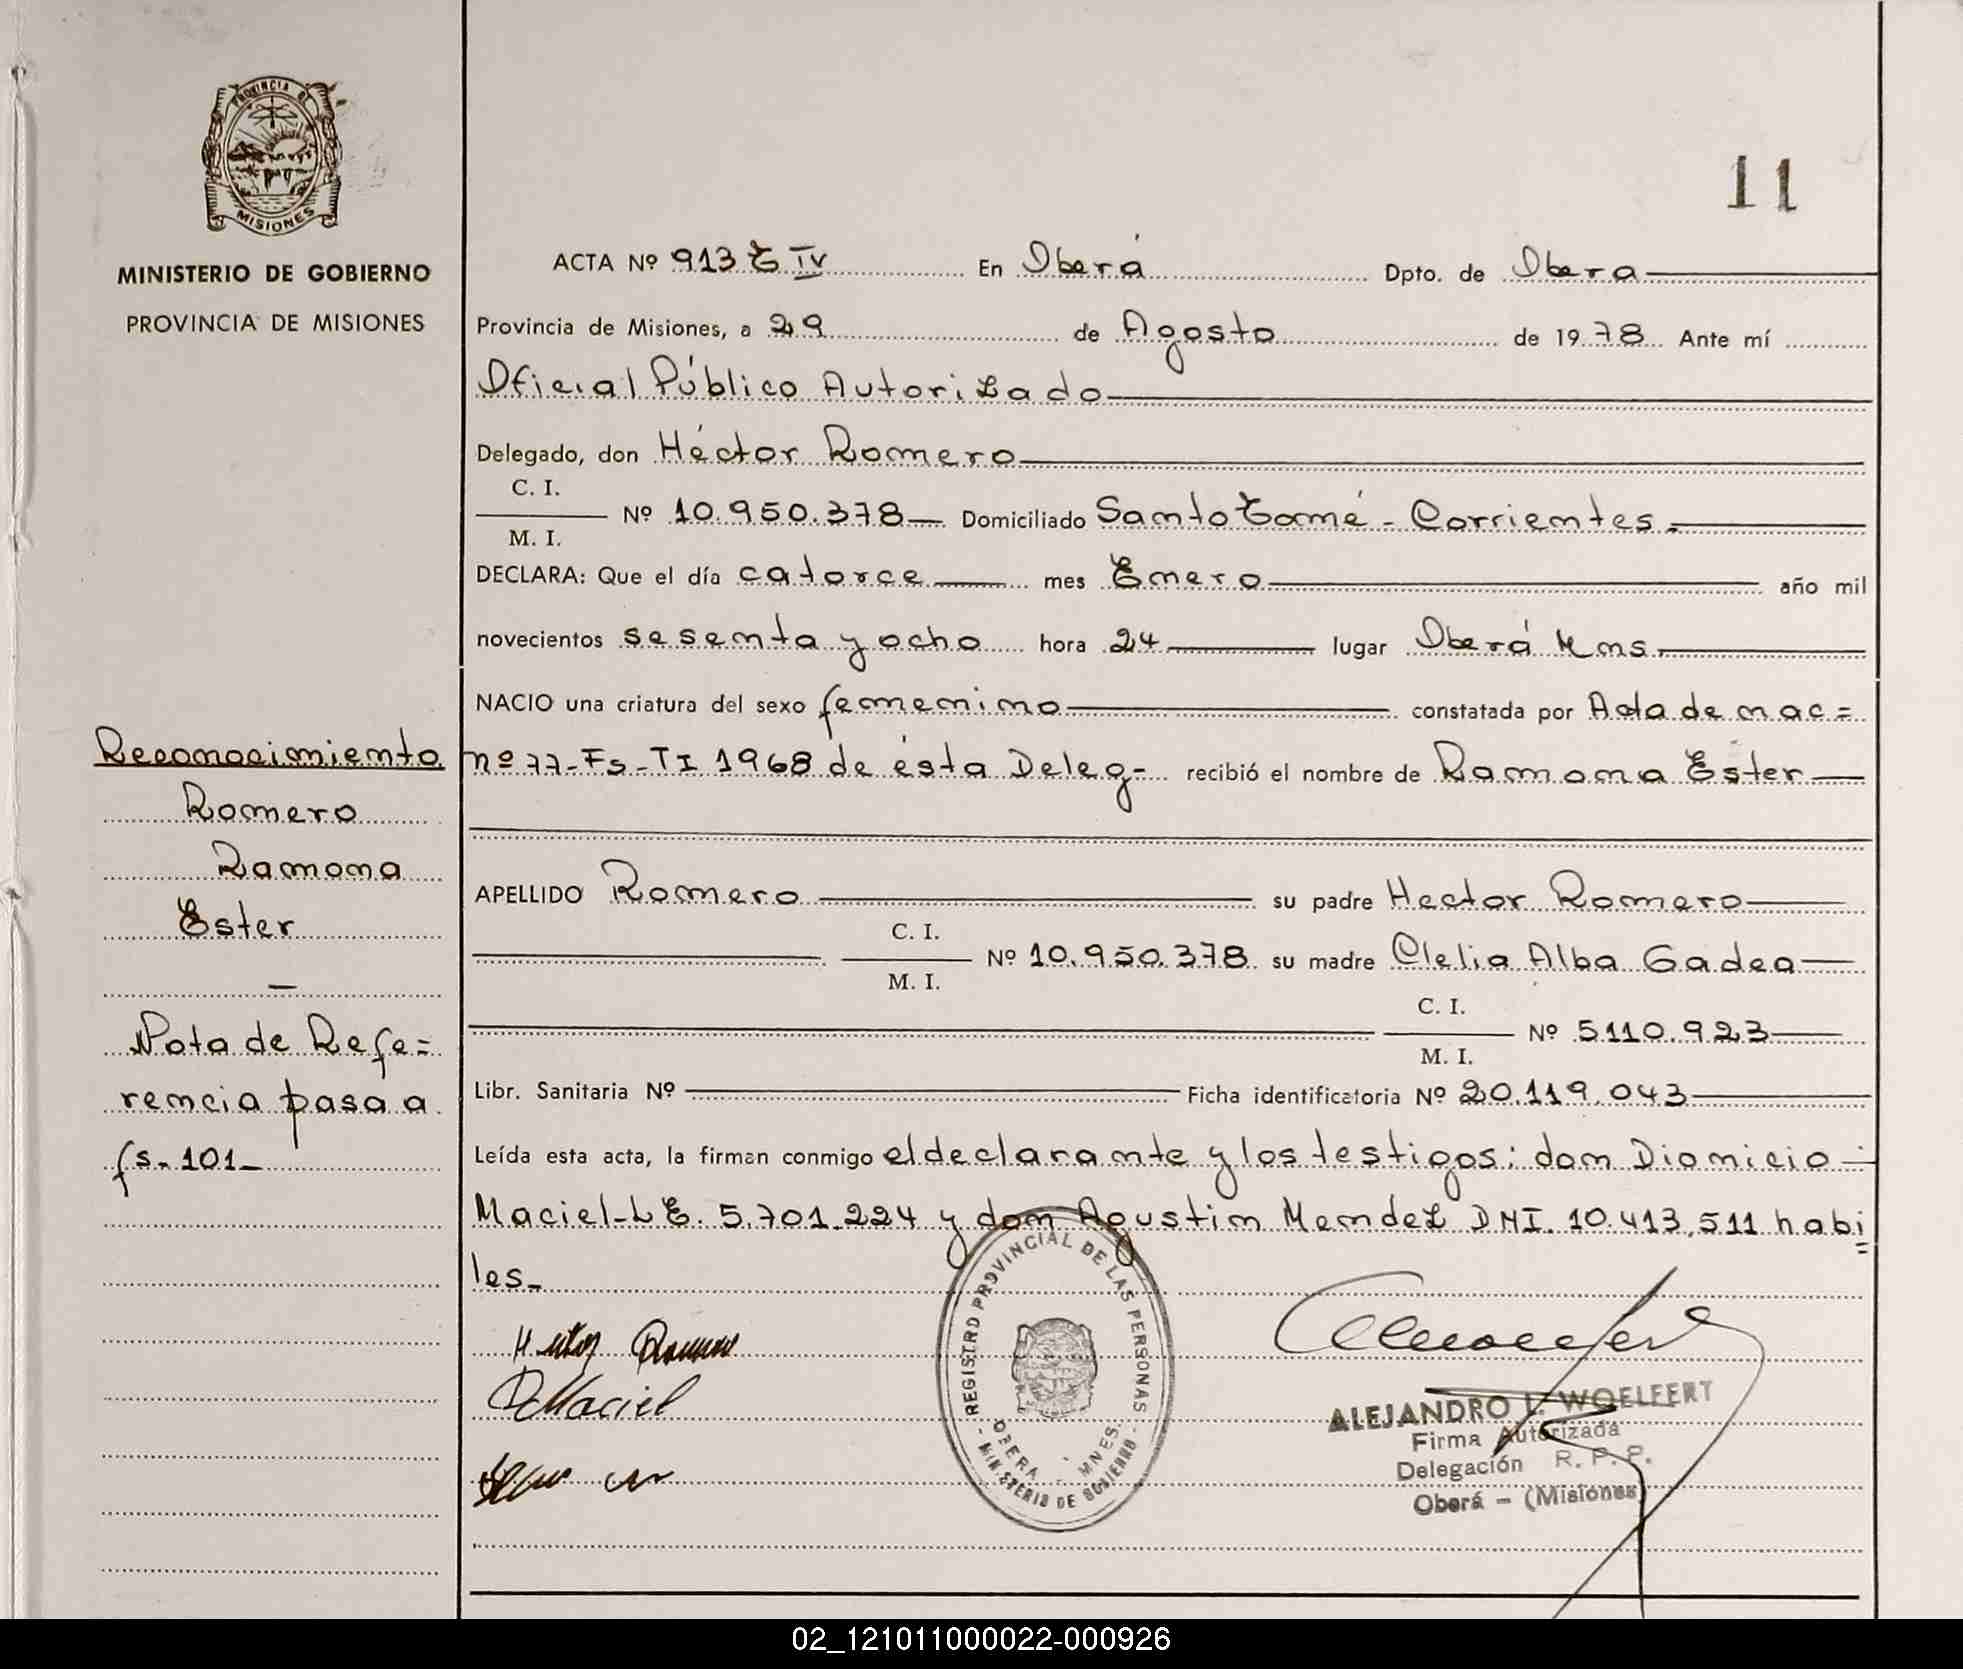 PROVINCIA DE
MISIONES
MINISTERIO DE GOBIERNO
PROVINCIA DE MISIONES
11
ACTA Nº 913 T IV En Oberá Dpto. de Obera
Provincia de Misiones, a 29 de Agosto de 1978 Ante mí
Oficial Público Autorizado
Delegado, don Héctor Romero
C. I.
M. I. Nº 10.950.378 Domiciliado Santo Tomé - Corrientes.
DECLARA: Que el día catorce mes Enero año mil
novecientos sesenta y ocho hora 24 lugar Oberá Mns.
NACIO una criatura del sexo femenino constatada por Acta de nac=
nº 77-Fs-TI 1968 de ésta Deleg- recibió el nombre de Ramona Ester
APELLIDO Romero su padre Hector Romero
C. I.
M. I. Nº 10.950.378 su madre Clelia Alba Gadea
C. I.
M. I. Nº 5110.923
Libr. Sanitaria Nº Ficha identificatoria Nº 20.119.043
Leída esta acta, la firman conmigo el declarante y los testigos: don Dionicio
Maciel-LE. 5.701.224 y don Agustin Mendez DNI. 10.413.511 habi=
les-
Reconocimiento
Romero
Ramona
Ester
Nota de Refe=
rencia pasa a
fs. 101-
Hector Romero
DMaciel
REGISTRO PROVINCIAL DE LAS PERSONAS
OBERA - MNES.
- MINISTERIO DE GOBIERNO -
ALEJANDRO L. WOELFERT
Firma Autorizada
Delegación R. P. P.
Oberá - (Misiones)
02_121011000022-000926